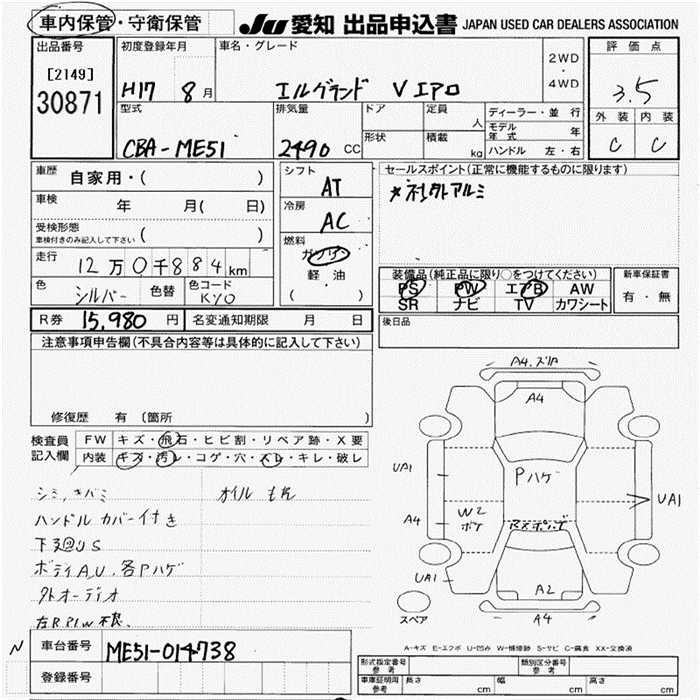 車内保管・守衛保管
JU 愛知 出品申込書 JAPAN USED CAR DEALERS ASSOCIATION
出品番号
[2149]
30871
初度登録年月
H17 8月
車名・グレード
エルグランド V エアロ
2WD
・
4WD
評価点
3.5
外装 内装
C C
型式
CBA-ME51
排気量
2490 CC
ドア
形状
定員
人
積載
kg
ディーラー・並行
モデル年式 年
ハンドル 左・右
車歴
自家用・( )
車検
年 月( 日)
受検形態
車検付きのみ記入して下さい ( )
走行
12万0千884km
色
シルバー
色替
色コード
KY0
シフト
AT
冷房
AC
燃料
ガソリン
軽油
( )
セールスポイント(正常に機能するものに限ります)
*社外アルミ
装備品(純正品に限り○をつけてください)
PS PW エアB AW
SR ナビ TV カワシート
新車保証書
有・無
R券 15,980円
名変通知期限 月 日
後日品
注意事項申告欄(不具合内容等は具体的に記入して下さい)
修復歴 有 〔箇所 〕
検査員
記入欄
FW キズ・飛石・ヒビ割・リペア跡・X要
内装 キズ・汚レ・コゲ・穴・スレ・キレ・破レ
シミ,キバミ
オイルもれ
ハンドルカバー付き
下回りS
ボディA,U.各Pハゲ
外オーディオ
左RP/W不良.
A4.ズレ
A4
UA1
Pハゲ
W2
ボケ
A4
UA1
UA1
A2
A4
スペア
N
車台番号
ME51-014738
登録番号
A-キズ E-エクボ U-凹み W-補修跡 S-サビ C-腐食 XX-交換済
形式指定番号
参考
類別区分番号
参考
車庫証明用
参考
長さ cm
幅 cm
高さ cm